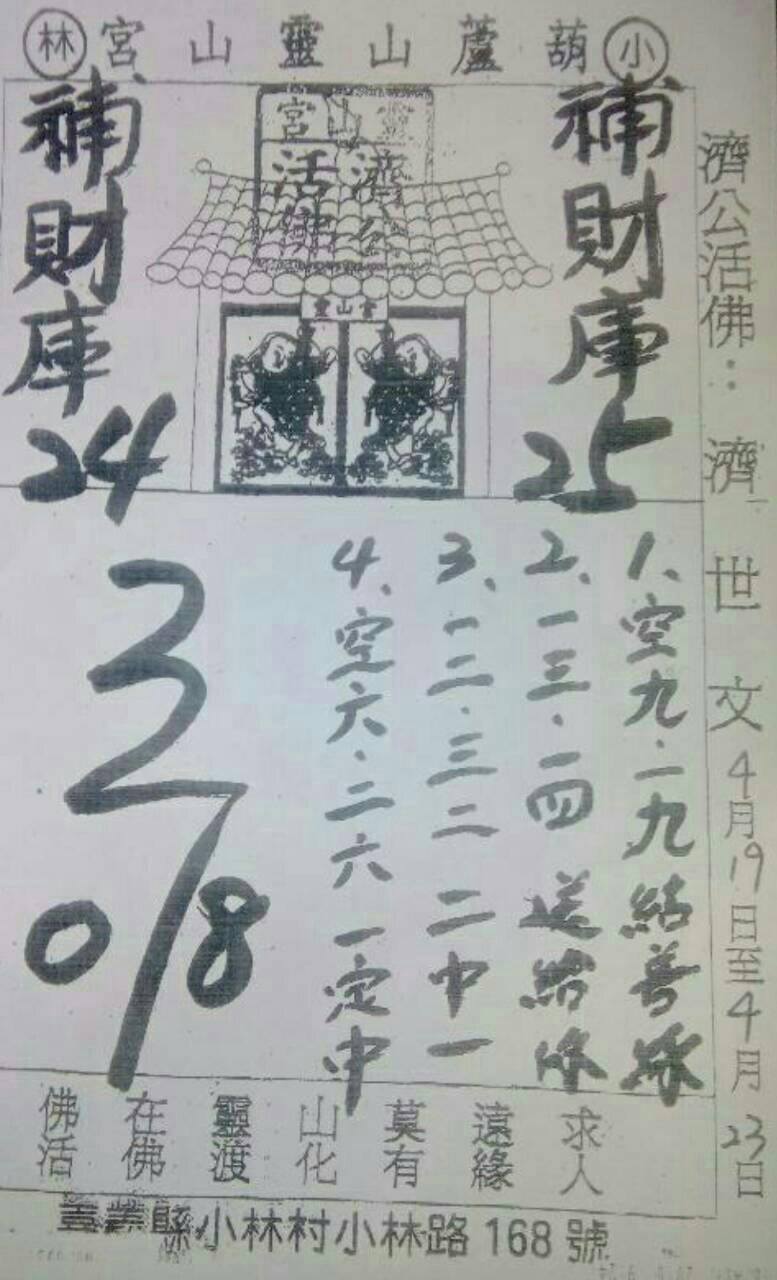 小葫蘆山靈山宮林
濟公活佛：濟世文4月19日至4月23日
補財庫25
靈山宮
濟公
活佛
靈山宮
補財庫24
1、空九．二九結善緣
2、一三．一四送給你
3、一二．三二二中一
4、空六．二六一定中
3
0/8
佛在靈山莫遠求
活佛渡化有緣人
縣小林村小林路168號